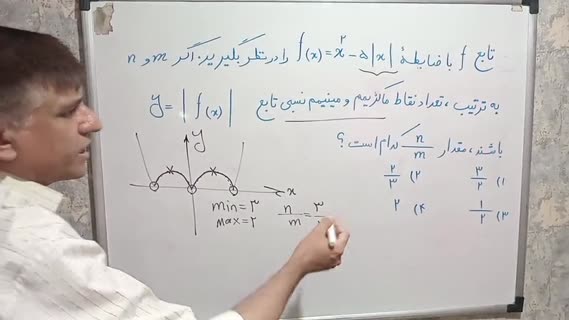 تابع f با ضابطهٔ f(x)=x²-۵|x| را در نظر بگیرید: اگر m و n
به ترتیب، تعداد نقاط ماکزیمم و مینیمم نسبی تابع y=|f(x)|
باشند، مقدار n/m کدام است؟
۱) ۳/۲ ۲) ۲/۳
۳) ۱/۲ ۴) ۲
y
x
min=۳
max=۲
n/m=۳/